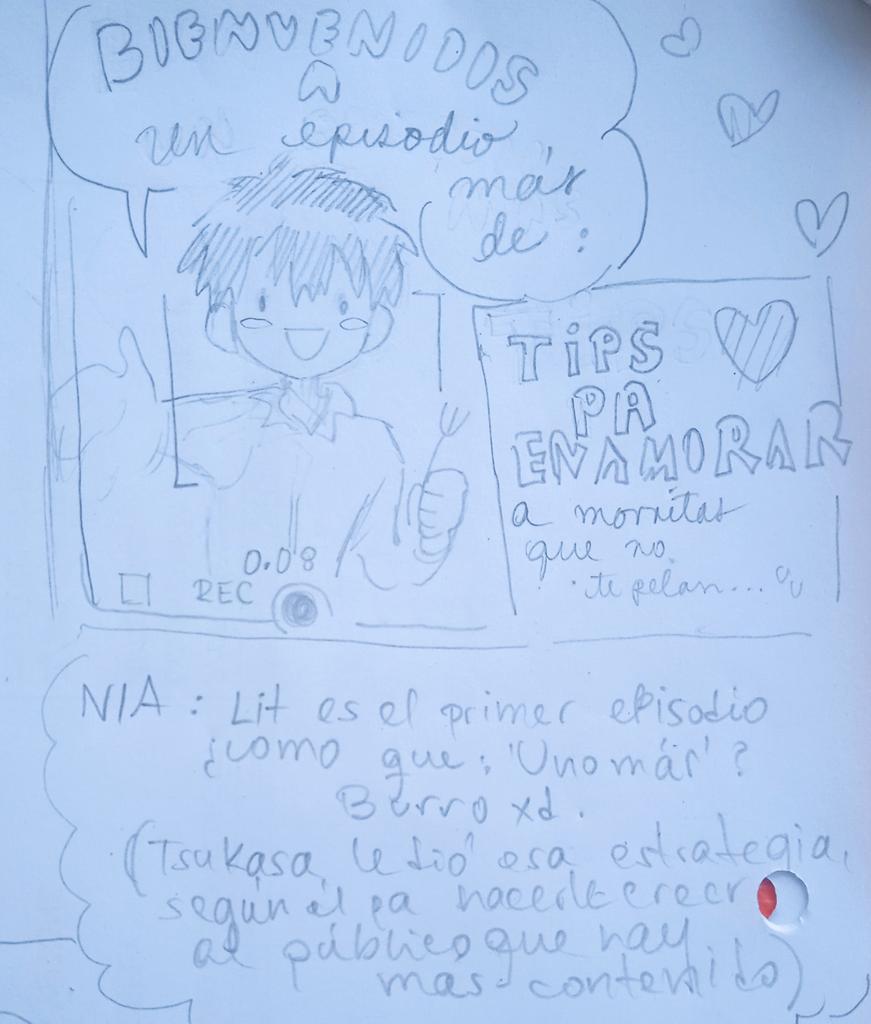 BIENVENIDOS
A
un episodio
más
de:
TiPS
PA
ENAMORAR
a morritas
que no
te pelan...
0.08
REC
N/A: Lit es el primer episodio
¿como que: 'Uno más'?
Burro xd.
(Tsukasa le dió esa estrategia,
según él pa hacerle creer
al público que hay
mas contenido)